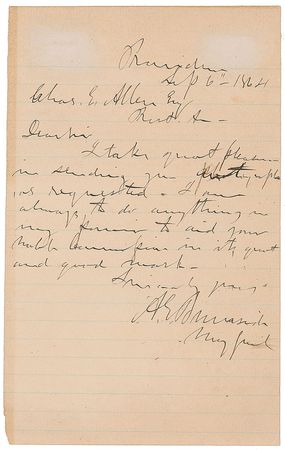 Providence
Sep 6" 1864
Chas. E. Allen Esq
Dear Sir
I take great pleasure
in sending you autographs
as requested. I am
always to do anything in
my power to aid your
noble Commission in its great
and good work.
Sincerely yours
A E Burnside
Maj Genl